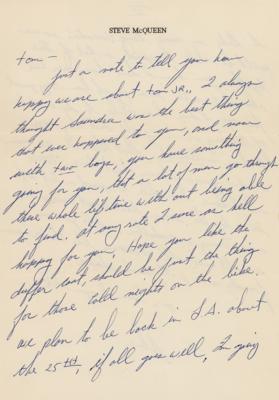 STEVE McQUEEN
Tom –
Just a note to tell you how
happy we are about Tom JR., I always
thought Saundra was the best thing
that ever happened to you, and now
with two boys, you have something
going for you, that a lot of men go though
there whole lifetime with out being able
to find. At any rate I sure as hell
happy for you. Hope you like the
duffer coat, should be just the thing
for those cold nights on the bike.
we plan to be back in L.A. about
the 25th, if all goes well, I'm going